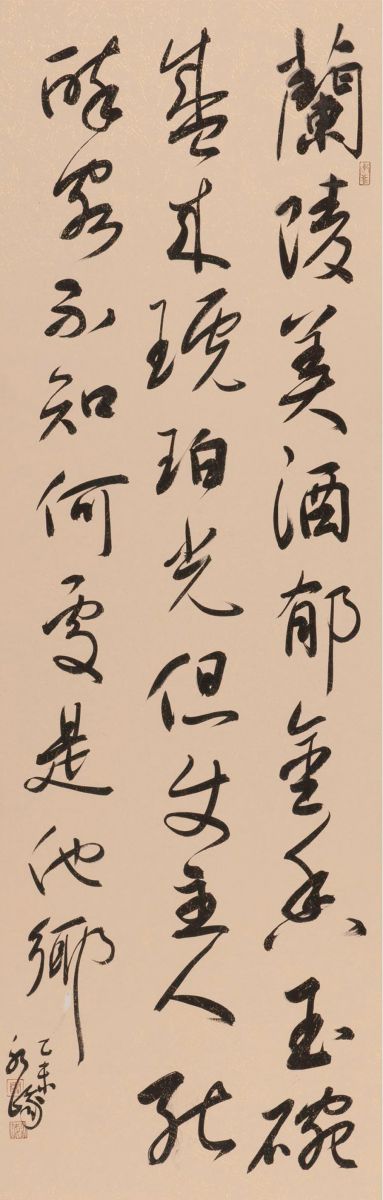 蘭陵美酒郁金香玉碗
盛来琥珀光但使主人能
醉客不知何處是他鄉
乙未